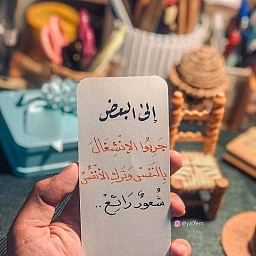 إلى البعض
جربوا الإنشغال
بالنفس وترك الأنفس
شعورٌ رائع ..
@ya7em